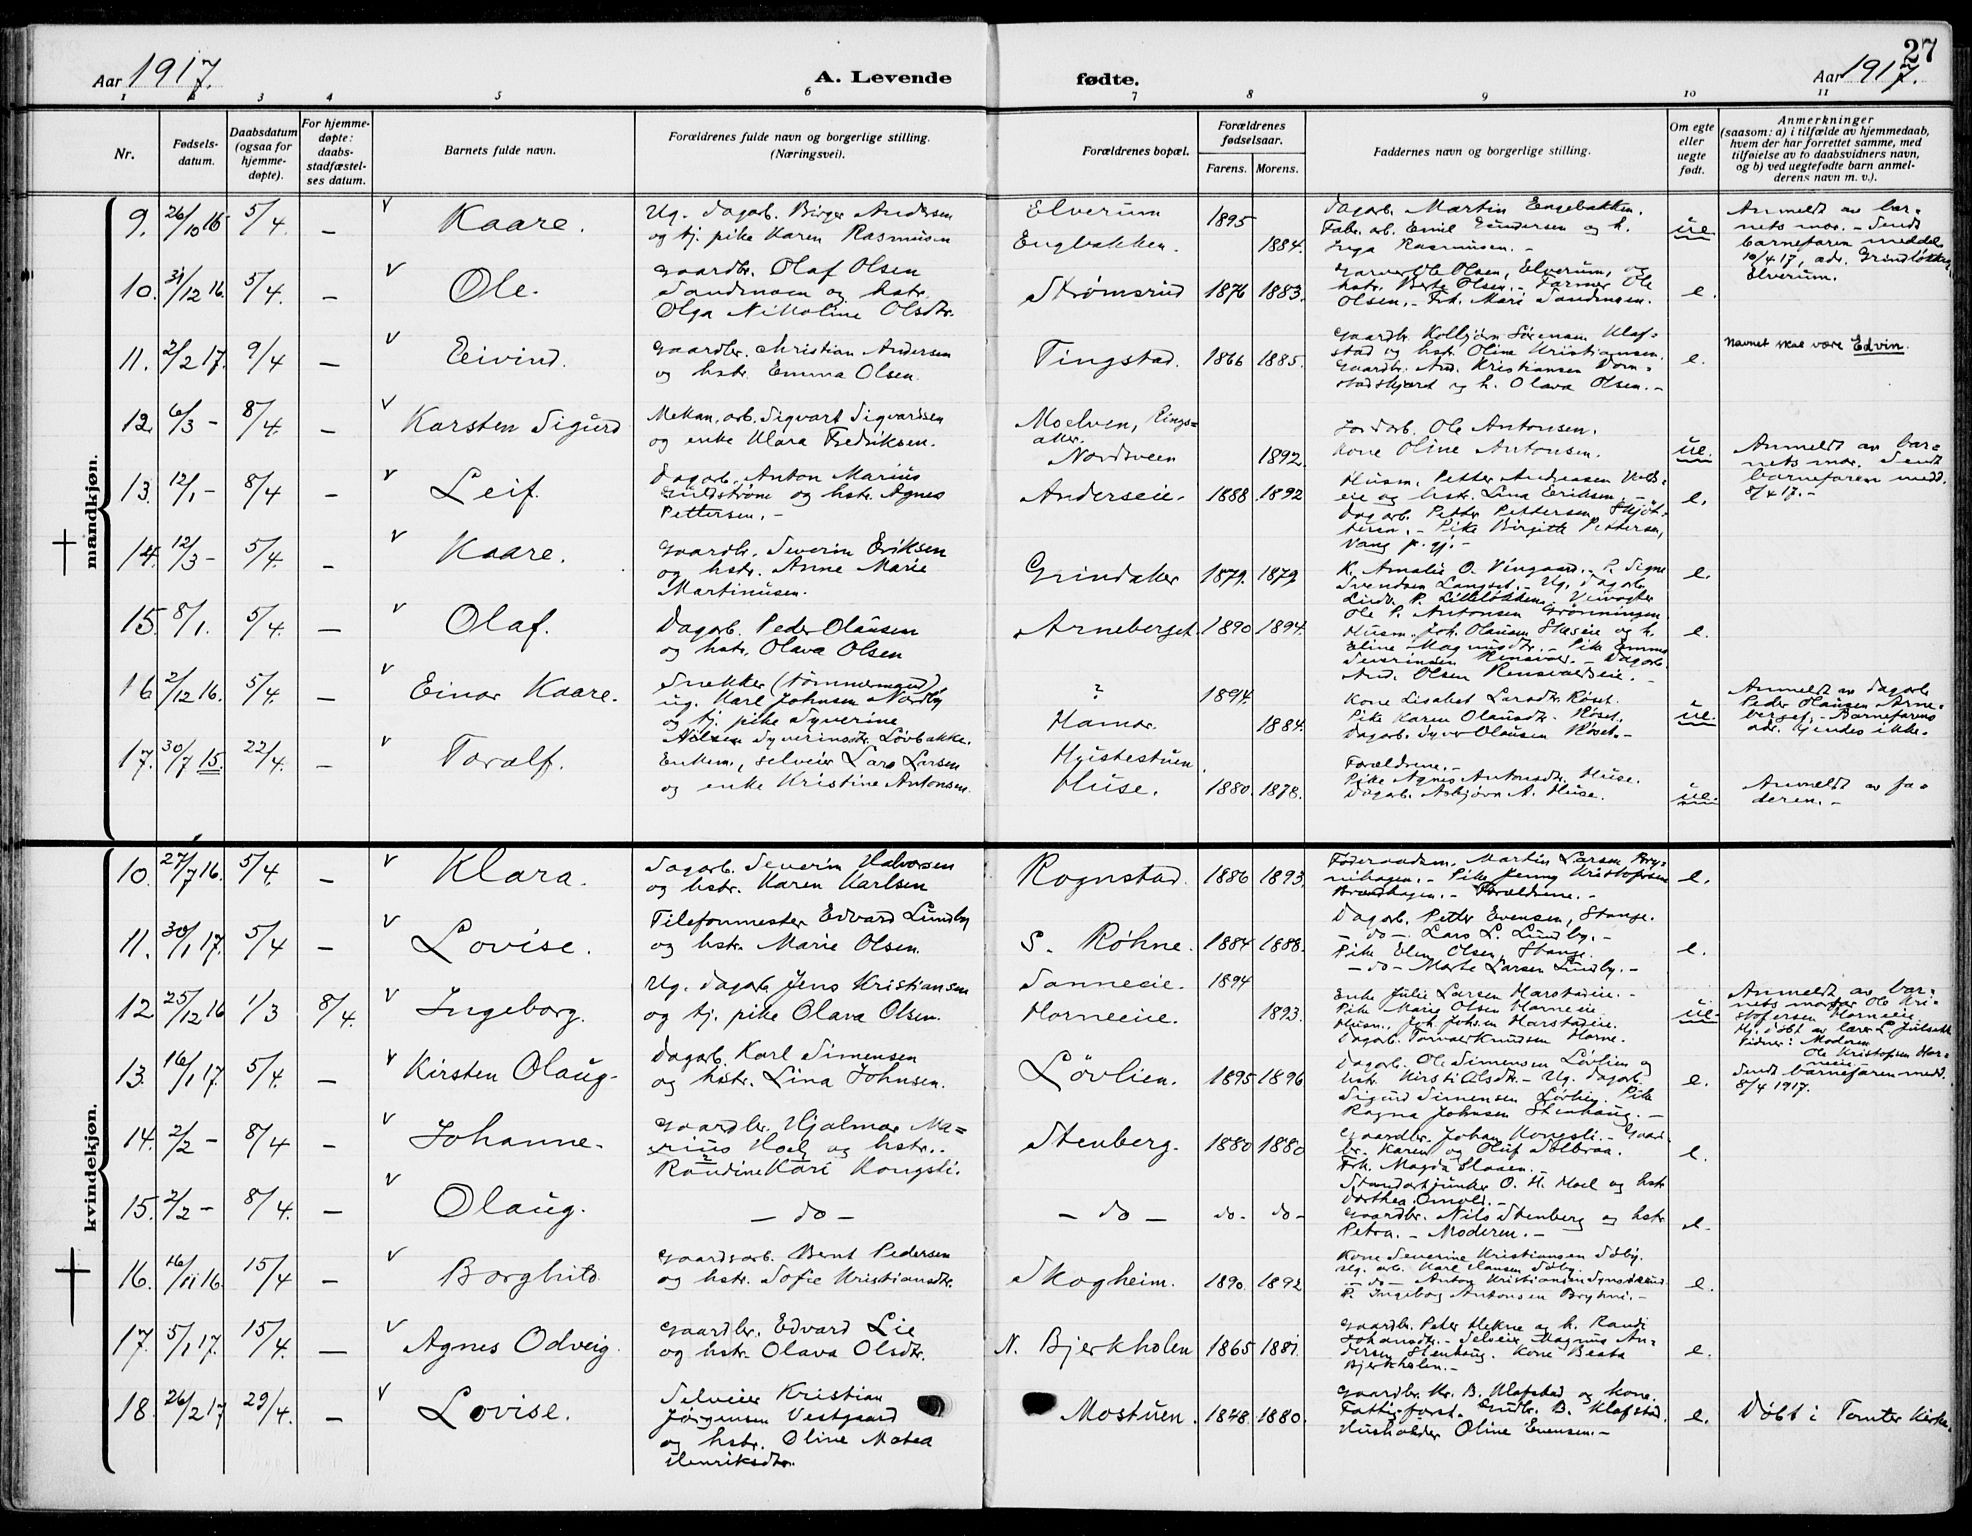 27
Aar 1917.
A. Levende fødte.
Aar 1917.
1 2 3 4 5 6 7 8 9 10 11
Nr.
Fødsels-
datum.
Daabsdatum
(ogsaa for
hjemme-
døpte).
For hjemme-
døpte:
daabs-
stadfæstel-
ses datum.
Barnets fulde navn.
Forældrenes fulde navn og borgerlige stilling.
(Næringsvei).
Forældrenes bopæl.
Forældrenes
fødselsaar.
Farens. Morens.
Faddernes navn og borgerlige stilling.
Om egte
eller
uegte
født.
Anmerkninger
(saasom: a) i tilfælde av hjemmedaab,
hvem der har forrettet samme, med
tilføielse av to daabsvidners navn,
og b) ved uegtefødte barn anmel-
derens navn m. v.).
mandkjøn.
9. 26/10 16 5/4. – Kaare.
Ug. dagarb. Birger Andersen
og tj. pike Karen Rasmusen
Elverum 1895
Engbakken. 1884.
Dagarb. Martin Engebakken.
Fabr. arb. Emil Gundersen og h.
Inga Rasmusen. –
ue.
Anmeldt av bar=
nets mor. – Sendt
barnefaren meddel.
10/4 17, adr. Grindløkka,
Elverum.
10. 31/12 16. 5/4. – Ole.
Gaardbr. Olaf Olsen
Sandmoen og hstr.
Olga Nikoline Olsdtr.
Strømsrud 1876 1883.
Garver Ole Olsen, Elverum, og
hstr. Berte Olsen. – Farmer Ole
Olsen. – Frk. Mari Sandmoen.
e.
11. 2/2 17. 9/4 – Eivind.
Gaardbr. Christian Andersen
og hstr. Emma Olsen.
Tingstad. 1866 1885.
Gaardbr. Kolbjørn Sørensen Klaf=
stad og hstr. Oline Kristiansen.
Gaardbr. And. Kristiansen Dom=
stadskjærd og h. Olava Olsen. –
e.
Navnet skal være Edvin.
12. 6/3 – 8/4. – Karsten Sigurd
Mekan. arb. Sigvart Sigvardsen
og enke Klara Fredriksen.
Moelven, Rings=
aker.
Nordsveen 1892.
Jordarb. Ole Antonsen.
Kone Oline Antonsen.
ue.
Anmeldt av bar=
nets mor. Sendt
barnefaren medd.
8/4 17. –
13. 12/1 – 8/4 – Leif.
Dagarb. Anton Marius
Guldstrøm og hstr. Agnes
Pettersen. –
Anderseie. 1888 1892
Husm. Petter Andreasen
eie og hstr. Lina Eriksen. –
Dagarb. Petter Pettersen,
Pike Birgith Pettersen,
Vang p. gj. –
e.
14. 12/3 – 5/4. – Kaare.
Gaardbr. Severin Eriksen
og hstr. Anne Marie
Martinusen.
Grindaker 1879. 1879
K. Amalie O. Vingaard. – P. Signe
Svendsen Langset. – Ug. dagarb.
Lilleløkken. Veivogter
Ole P. Antonsen Grønningen.
e.
15. 8/1. 5/4. – Olaf.
Dagarb. Peder Olausen
og hstr. Olava Olsen
Arneberget. 1890 1894.
Husm. Joh. Olausen og h.
Eline Magnusdtr. – Pike Emma
Severinsen – Dagarb.
And. Olsen
e.
16 2/12 16. 5/4. – Einar Kaare.
Snekker (tømmermand)
ug. Karl Johnsen Nordby
og tj. pike Syverine
Nilsen Syverinsdtr. Løvbakke.
? 1894.
Hamar. 1884.
Kone Lisabet Larsdtr. Røset.
Pike Karen Olausdtr. Røset.
Dagarb. Syver Olausen Røset. –
ue.
Anmeldt av dagarb.
Peder Olausen Arne=
berget. – Barnefarens
adr. kjendes ikke. –
17. 30/7 15. 22/4. – Toralf.
Enkem., selveier Lars Larsen
og enke Kristine Antonsen.
Huse. 1880. 1878.
Forældrene. –
Pike Agnes Antonsdtr. Huse.
Dagarb. Asbjørn A. Huse.
ue.
Anmeldt av fa=
deren. –
kvindekjøn.
10. 27/7 16. 5/4. – Klara.
Dagarb. Severin Halvorsen
og hstr. Karen Karlsen
Rognstad. 1886 1893.
Føderaadsm. Martin Larsen Bry=
nihagen. – Pike Jenny Kristofersen
– Forældrene. –
e.
11. 30/1 17. 5/4 – Lovise.
Telefonmester Edvard Lundby
og hstr. Marie Olsen.
S. Røhne. 1884 1888.
Dagarb. Petter Evensen, Stange.
– do – Lars L. Lundby. –
Pike Elen Olsen, Stange.
– do – Marte Larsen Lundby. –
e.
12 25/12 16 1/3 8/4. Ingeborg.
Ug. dagarb. Jens Kristiansen
og tj. pike Olava Olsen.
Sanneeie. 1894
Horneeie. 1893.
Enke Julie Larsen Harstadeie. –
Pike Marie Olsen Horneeie
Husm. Joh. Johsen Harstadeie.
Dagarb. Torvald Knudsen Horne.
ue.
Anmeldt av bar=
nets morfar Ole Kri=
stofersen Horneeie.
Hj. døbt av lærer L. Julsett
Vidner: Moderen
Ole Kristofsen Hor=
neeie. –
Sendt barnefaren medd.
8/4 1917.
13. 16/1 17. 5/4. – Kirsten Olaug.
Dagarb. Karl Simensen
og hstr. Lina Johnsen.
Løvlien. 1895 1896
Dagarb. Ole Simensen Løvlien og
hstr. Kirsti Olsdtr. – Ug. dagarb.
Sigurd Simensen Løvlien. Pike
Ragna Johnsen Stenhaug. –
e.
14. 2/2 – 8/4 – Johanne.
Gaardbr. Hjalmar Ma=
rius Hoel og hstr.
Randine Kari Kongsli.
Stenberg. 1880 1880
Gaardbr. Johan Kongsli. – Gaard
br. Karen og Oluf Solbraa.
Frk. Magda Slaaen. –
e.
15. 2/2 – 8/4. – Olaug.
– do –
– do – do – do –
Standartjunker O. H. Hoel og hstr
Dorthea –
Gaardbr. Nils Stenberg og hstr
Petra. – Moderen. –
e.
16. 16/11 16. 15/4 – Borghild.
Gaardsarb. Bernt Pedersen
og hstr. Sofie Kristiansdtr.
Skogheim. 1890. 1892
Kone Severine Kristiansen Søby.
Ug. arb. Karl Hansen Søby.
– do – Anton Kristiansen
P. Ingeborg Antonsen Bryhni. –
e.
17. 5/1 17. 15/4. – Agnes Odveig.
Gaardbr. Edvard Lie
og hstr. Olava Olsdtr.
N. Bjerkholen 1865 1881.
Gaardbr. Peter Hekne og h. Randi
Johansdtr. – Selveier Magnus An=
dersen Stenhaug. Kone Beata
Bjerkholen. –
e.
18. 26/2 17 29/4. – Lovise.
Selveier Kristian
Jørgensen Vestgaard
og hstr. Oline Matea
Henriksdtr.
Mostuen. 1848. 1880.
Gaardbr. Kr. B. Klafstad og kone.
Fattigforst. Gudbr. B. Klafstad.
Husholder Oline Evensen. –
e.
Døbt i Tomter Kirke.